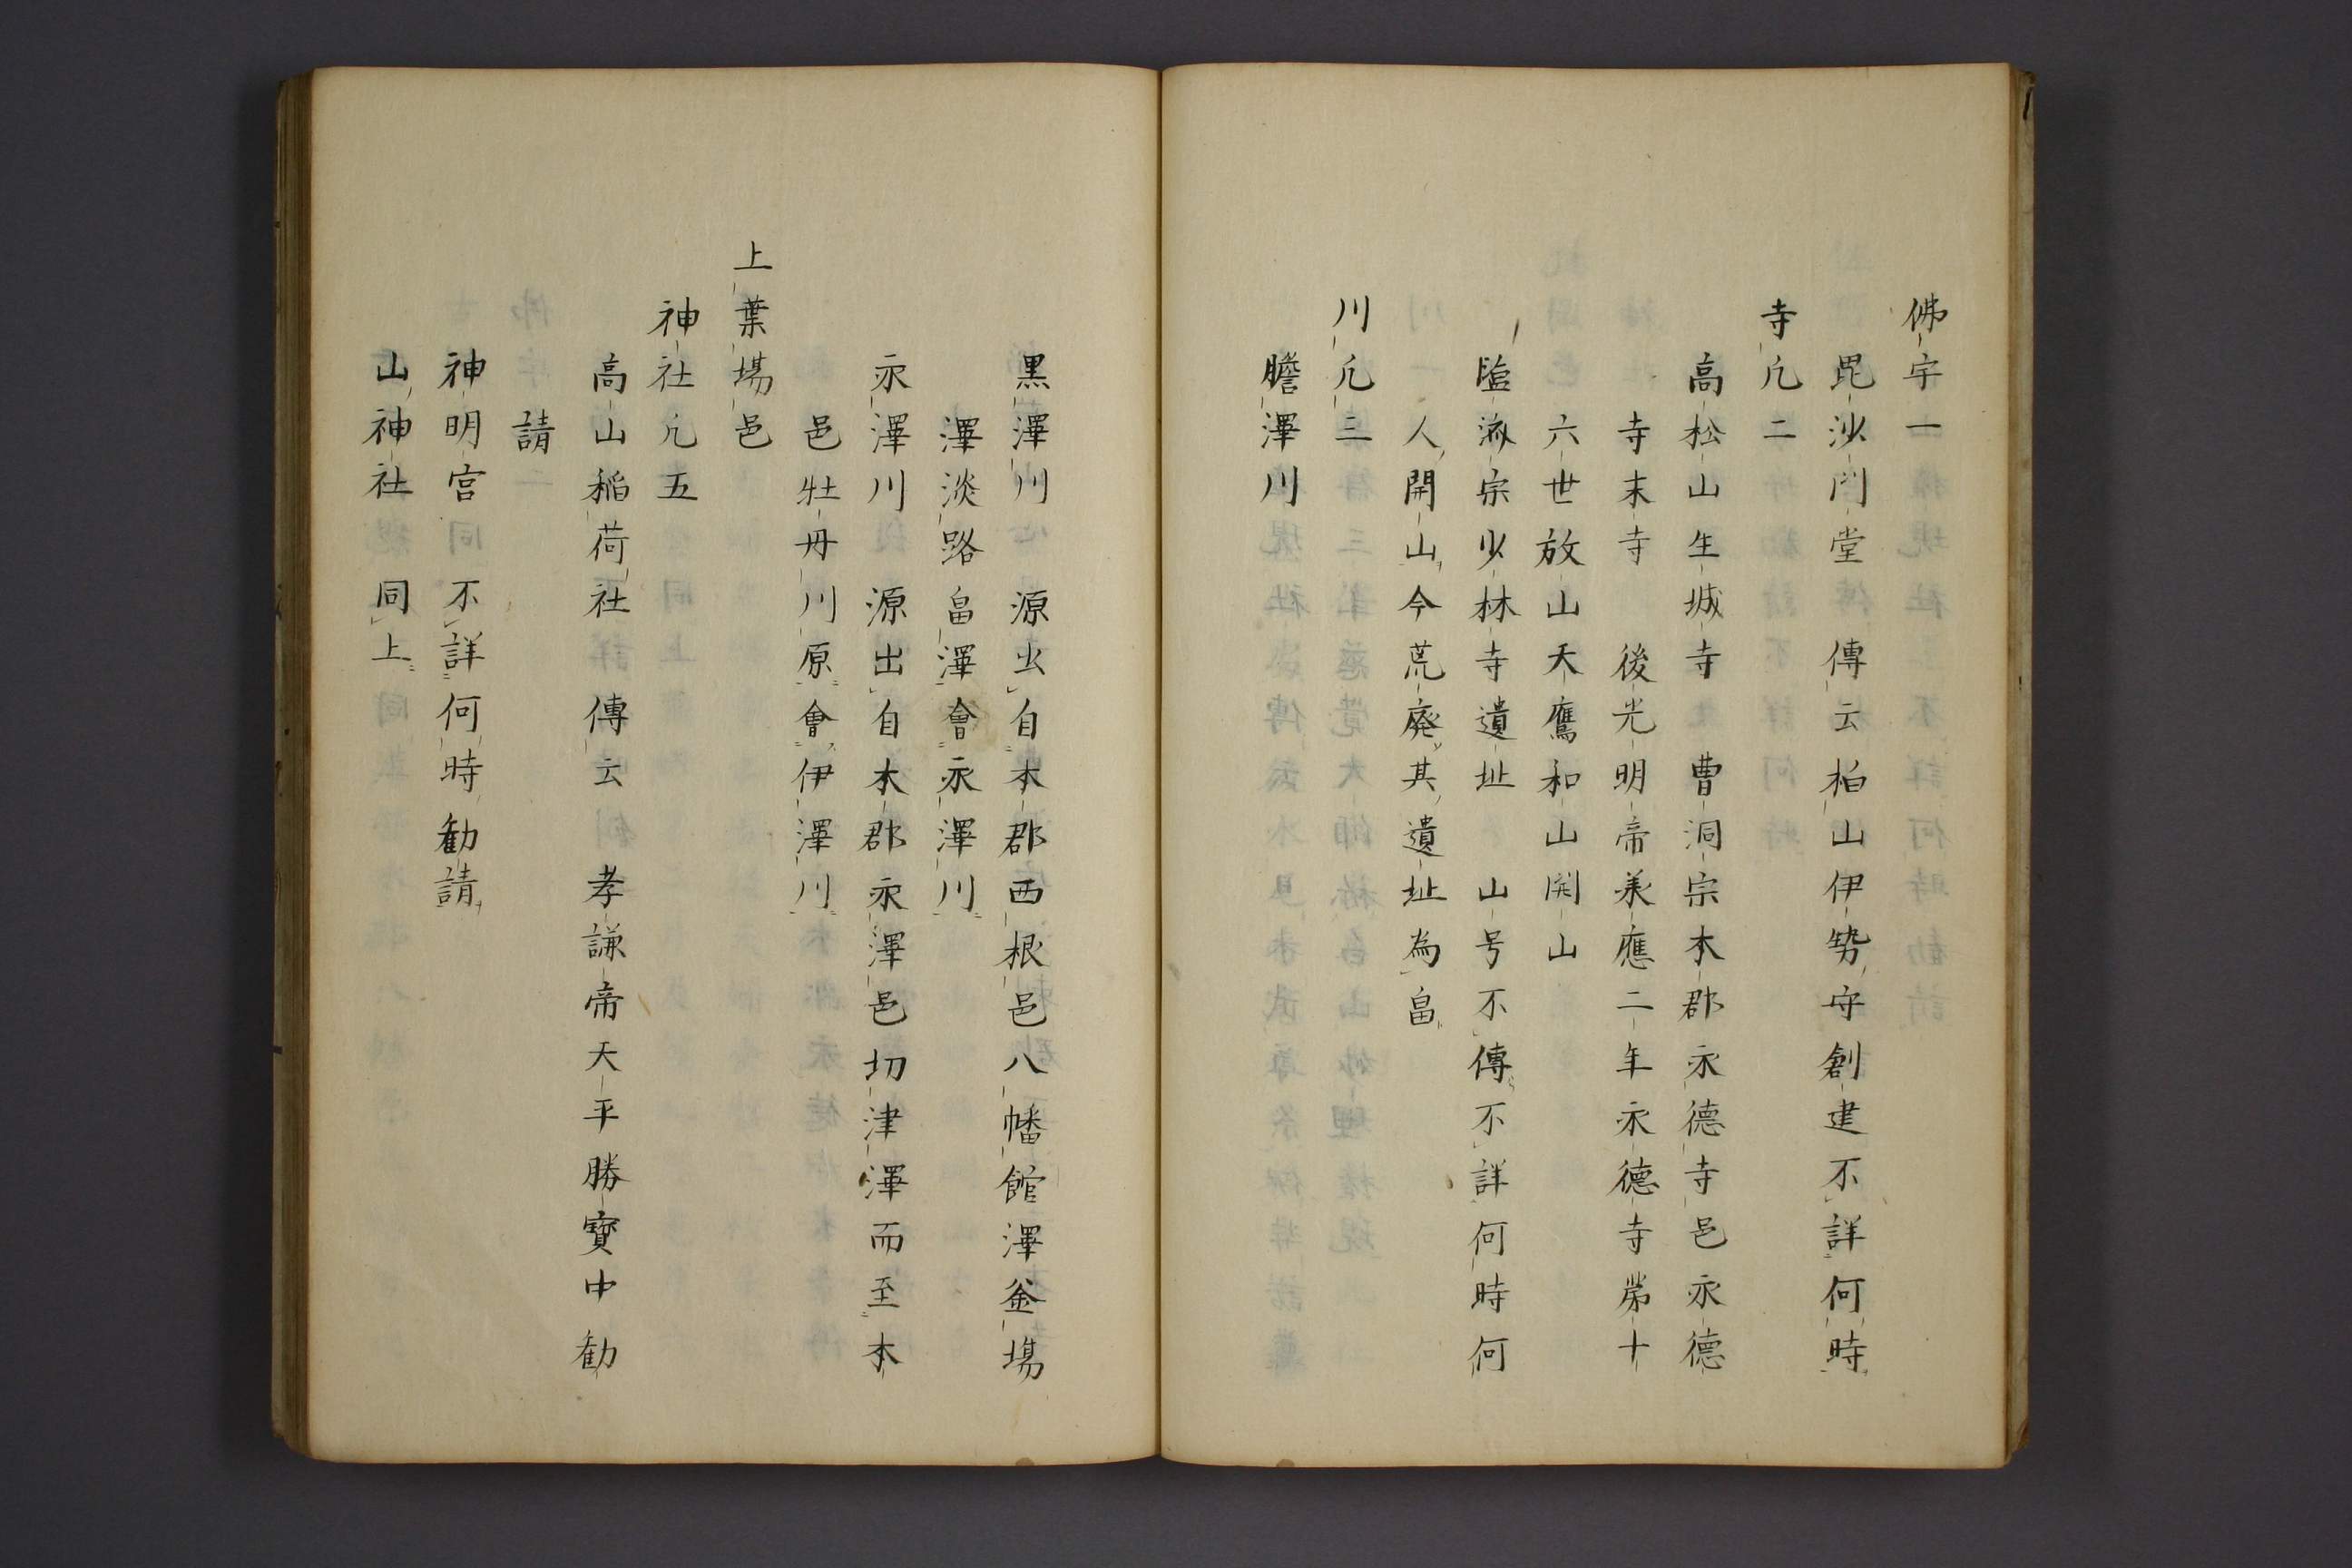 佛宇一
毘沙門堂 傳云柏山伊勢守創建不詳何時
寺凢二
高松山生城寺 曹洞宗本郡永德寺邑永德
寺末寺 後光明帝義應二年永德寺第十
六世放山天鷹和山開山
臨濟宗少林寺遺址 山号不傳不詳何時何
人開山今荒廃其遺址為畠
川凢三
膽澤川
黒澤川 源出自本郡西根邑八幡館澤釜場
澤淡路畠澤會永澤川
永澤川 源出自本郡永澤邑切津澤而至本
邑牡丹川原會伊澤川
上葉場邑
神社凢五
高山稲荷社 傳云 孝謙帝天平勝寳中勧
請
神明宮 不詳何時勧請
山神社 同上